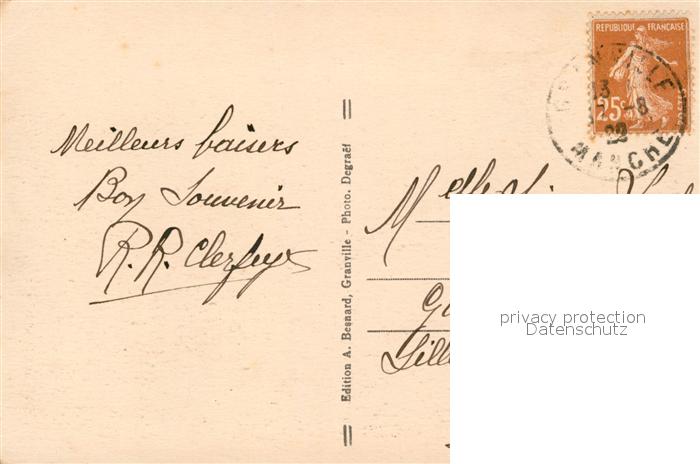 Meilleurs baisers
Bon Souvenir
R. R.
Edition A. Besnard, Granville - Photo. Degraëf
REPUBLIQUE FRANÇAISE
25c
GRANVILLE
13
8
22
MANCHE
privacy protection
Datenschutz